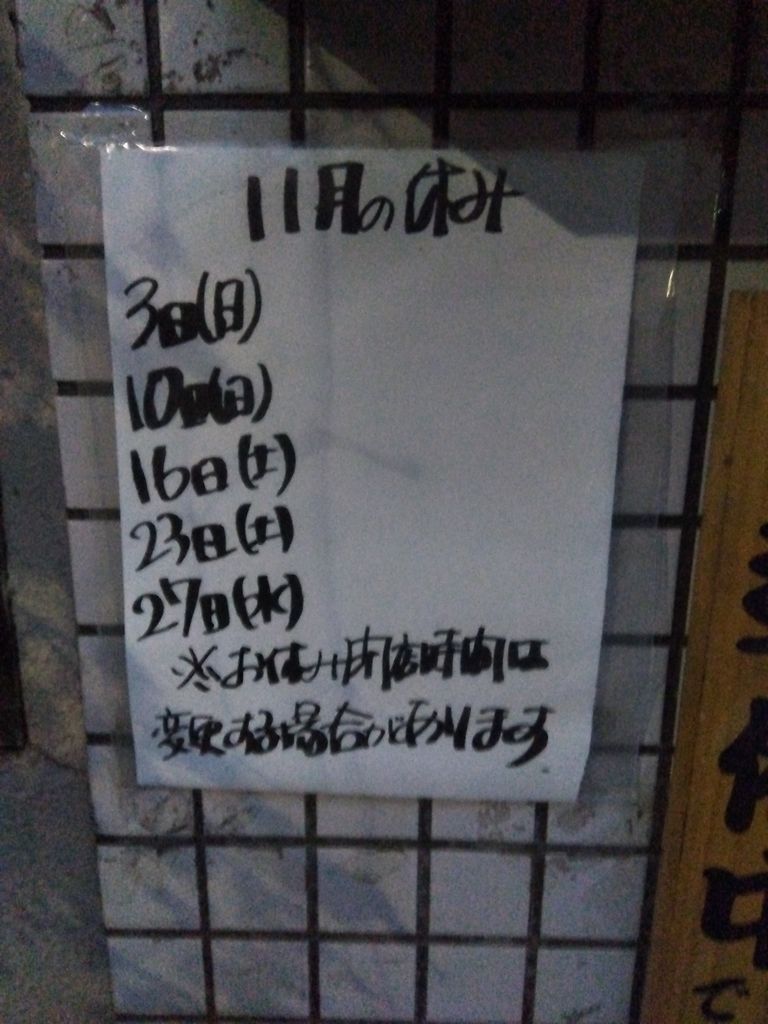 11月の休み
3日(日)
10日(日)
16日(土)
23日(土)
27日(水)
※お休み・閉店時間は
変更する場合があります
中
で